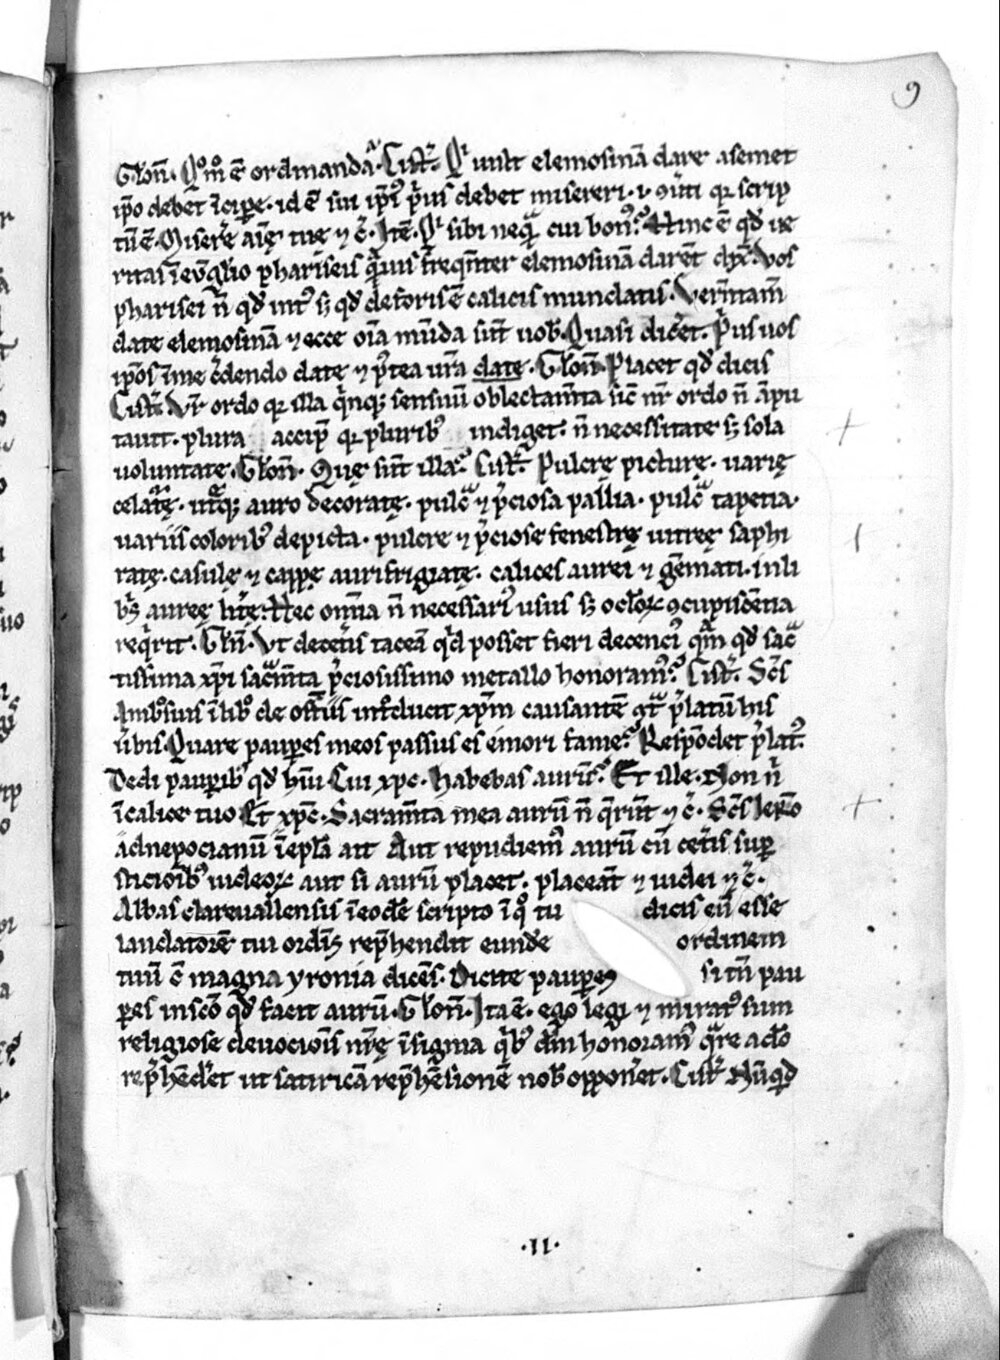 9
Clon̄. Qͦm̊ ē ordinandaᷓ. Cist̄. Qͥ uult elemosinā dare asemet
ip̄o debet īcipe. id ē sui ip̄iꝰ p̄us debet misereri. ut qꝛ scrip
tū ē. Miserē aīę tuę ⁊ c̄. Itē. Qͥ sibi neq̄ᷓ cui bonꝰ? Hinc ē qd̄ ue
ritas ī euḡlio phariseis q̄ᷓuis freq̄nter elemosinā darēt dix̄. Vos
pharisei n̄ qd̄ intꝰ sꝫ qd̄ deforis ē calicis mundatis. Vern̄tam̄
date elemosinā ⁊ ecce oīa mūda sūt uob̄. Quasi dic̄et. p̄us uos
ip̄os ī me c̄dendo date ⁊ p̄tea ur̄a date. Clon̄. Placet qd̄ dicis
Cist̄. Vr̄ ordo qꝛ illa q̄nqꝫ sensuū oblectam̄ta sic̄ nr̄ ordo n̄ āpu
tauit. plura accip̄ qꝛ pluribꝰ indiget. n̄ necessitate sꝫ sola
uoluntate. Clon̄. Quę sūt illa? Cist̄. Pulcrę picturę. uarię
celatᷓę. utᷓqꝫ auro decoratę. pulcᷓ ⁊ p̄ciosa pallia. pulcᷓ tapetia.
uariis coloribꝰ depicta. pulcre ⁊ p̄ciose fenestrę uitreę saphi
ratę. casulę ⁊ cappę aurifrigiatę. calices aurei ⁊ gēmati. in li
bͥs aureę lit̄ę. Hec omīa n̄ necessariꝰ usus sꝫ oclōꝝ ꝯcupiscētia
req̄rit. Clōn. Vt decet̄is taceā qͥd posset fieri decenciꝰ q̄ᷓm qd̄ sac̄
tissima xp̄i sacᷓm̄ta p̄ciosissimo metallo honoramꝰ? Cist̄. Sc̄s
Ambrosius ī lib̄ de offitiis int̊ducit xp̄m causantē ꝯtᷓ p̄latū his
ūbis. Quare pauꝑes meos passus es emori fame? Respōdet p̄latꝰ.
Dedi pauꝑibꝰ qd̄ hūi. Cui xp̄c. Habebas aurū? Et ille. Non n̄
ī calice tuo. Et xp̄c. Sacram̄ta mea aurū n̄ q̄rūt ⁊ c̄. Sc̄s Ier̄o
ad nepocianū ī epl̄a ait Aut repudiemꝰ aurū cū cet̄is suꝑ
sticioībꝰ iudeoꝝ aut si aurū placet. placeāt ⁊ iudei ⁊ c̄.
Abbas clareuallensis ī eodē scripto ī qͦ tu dicis eū esse
laudatorē tui ordīs rep̄hendit eundē ordinem
tuū c̄ magna yronia dicēs. Dicite pauꝑes si tn̄ pau
ꝑes in sc̄o qͥd facit aurū. Clon̄. Ita ē. ego legi ⁊ miratꝰ sum
religiose deuociois nr̄ę īsignia qͥbꝰ dm̄ honoramꝰ qᷓre adeo
rep̄hēd̄et ut satiricā rep̄hēsionē nob̄ oppon̄et. Cist̄. Nūqͥd
.II.